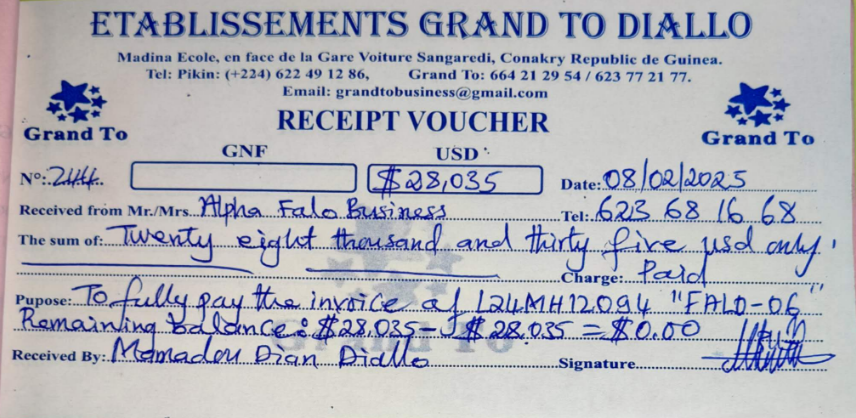 ETABLISSEMENTS GRAND TO DIALLO
Madina Ecole, en face de la Gare Voiture Sangaredi, Conakry Republic de Guinea.
Tel: Pikin: (+224) 622 49 12 86, Grand To: 664 21 29 54 / 623 77 21 77.
Email: grandtobusiness@gmail.com
Grand To RECEIPT VOUCHER Grand To
GNF USD
Nº: 244. $28,035 Date: 08/02/2025
Received from Mr./Mrs. Alpha Falo Business Tel: 623 68 16 68
The sum of: Twenty eight thousand and thirty five usd only.
Charge: Paid
Pupose: To fully pay the invoice of L24MH12094 "FALO-06"
Remaining balance: $28.035 - $28.035 = $0.00
Received By: Mamadou Dian Diallo Signature